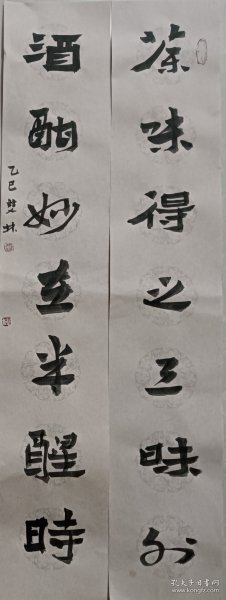 茶味得之三昧外
酒酣妙在半醒時
乙巳
孔夫子旧书网